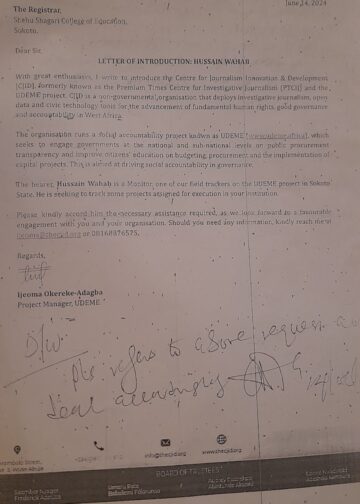 June 14, 2024
The Registrar,
Shehu Shagari College of Education,
Sokoto.
Dear Sir,
LETTER OF INTRODUCTION: HUSSAIN WAHAB
With great enthusiasm, I write to introduce the Centre for Journalism Innovation & Development
(CJID), formerly known as the Premium Times Centre for Investigative Journalism (PTCIJ) and the
UDEME project. CJID is a non-governmental organisation that deploys investigative journalism, open
data and civic technology tools for the advancement of fundamental human rights, good governance
and accountability in West Africa.
The organisation runs a fiscal accountability project known as UDEME (www.udeme.africa), which
seeks to engage governments at the national and sub-national levels on public procurement
transparency and improve citizens' education on budgeting, procurement and the implementation of
capital projects. This is aimed at driving social accountability in governance.
The bearer, Hussain Wahab is a Monitor, one of our field trackers on the UDEME project in Sokoto
State. He is seeking to track some projects assigned for execution in your institution.
Please kindly accord him the necessary assistance required, as we look forward to a favourable
engagement with you and your organisation. Should you need any information, kindly reach me at
ijeoma@thecjid.org or 08168876575.
Regards,
Ijeoma Okereke-Adagba
Project Manager, UDEME
D/W
Pls refers to above request and
deal accordingly
info@thecjid.org
www.thecjid.org
BOARD OF TRUSTEES